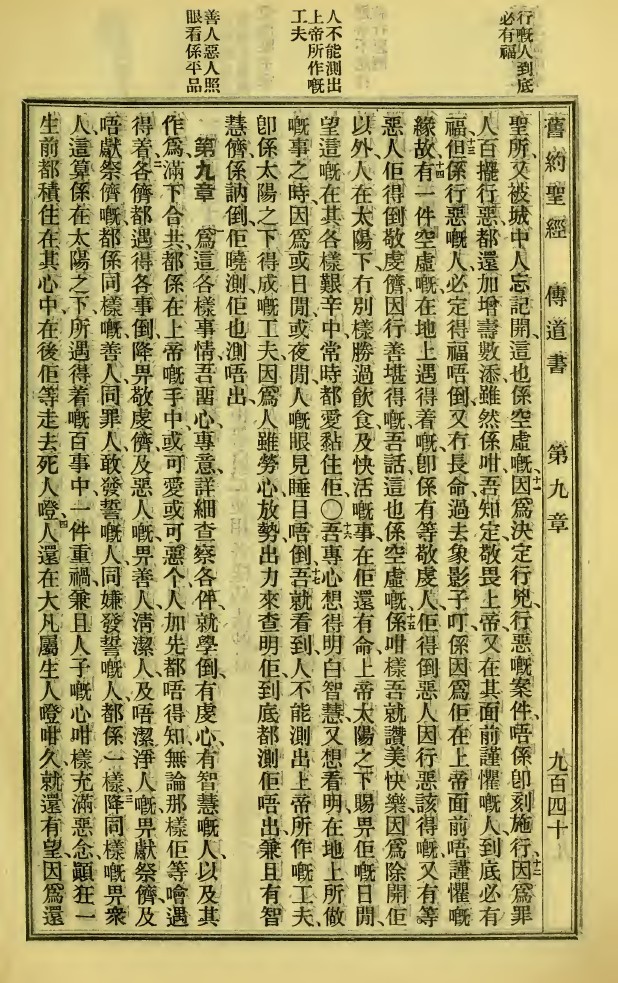 行嘅人到底
必有福
人不能測出
上帝所作嘅
工夫
善人惡人照
眼看係平品
舊約聖經 傳道書 第九章 九百四十
聖所、又被城中人忘記開、這也係空虛嘅、十一因爲決定行兇行惡嘅案件、唔係卽刻施行、十二因爲罪
人百擺行惡、都還加增壽數添、雖然係咁、吾知定敬畏上帝、又在其面前謹懼嘅人、到底必有
福、十三但係行惡嘅人、必定得福唔倒、又冇長命過去、象影子吖、係因爲佢在上帝面前唔謹懼嘅
緣故、十四有一件空虛嘅、在地上遇得着嘅、卽係有等敬虔人、佢得倒惡人因行惡該得嘅、又有等
惡人、佢得倒敬虔儕因行善堪得嘅、吾話、這也係空虛嘅、十五係咁樣吾就讚美快樂、因爲除開佢
以外、人在太陽下、冇別樣勝過飲食及快活嘅事、在佢還有命、上帝太陽之下賜畀佢嘅日間、
望這嘅在其各樣艱辛中、常時都愛黏住佢、〇十六吾專心想得明白智慧、又想看明在地上所做
嘅事之時、因爲或日間或夜間、人嘅眼見睡目唔倒、十七吾就看到、人不能測出上帝所作嘅工夫、
卽係太陽之下得成嘅工夫、因爲人雖勞心放勢出力來查明佢、到底都測佢唔出、兼且有智
慧儕、係訥倒佢曉測佢、也測唔出、
第九章 爲這各樣事情、吾畱心專意、詳細查察各件、就學倒、有虔心有智慧嘅人、以及其
作爲、滿下合共都係在上帝嘅手中、或可愛或可惡、个人加先都唔得知、無論那樣、佢等噲遇
得着、二各儕都遇得各事倒、降畀敬虔儕及惡人嘅、畀善人淸潔人、及唔潔淨人嘅、畀獻祭儕及
唔獻祭儕嘅、都係同樣嘅、善人同罪人、敢發誓嘅人、同嫌發誓嘅人、都係一樣、三降同樣嘅畀衆
人、這算係在太陽之下、所遇得着嘅百事中、一件重禍、兼且人子嘅心、咁樣充滿惡念、顚狂一
生前都積住在其心中、在後佢等走去死人嗌、四人還在大凡屬生人嗌咁久、就還有望、因爲還